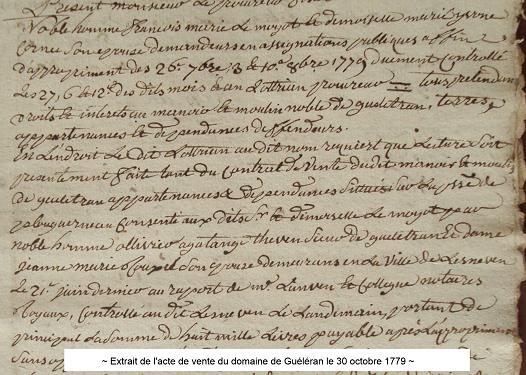 Présent monsieur le procureur
Noble homme françois marie le moyot et demoiselle marie yvonne
Corne son epouse demandeurs en assignations publiques affin
d'appropriment des 26e 7bre 3 et 10e 8bre 1779 duement controllé
les 27, 6 et 12e des dits mois et an Lottrian procureur tous pretendans
droits et interets au manoir et moulin noble de gueletran, terres,
appartenances et dependances deffendeurs.
En L'endroit Le dit Lottrian au dit nom requiert que Lecture soit
presentement fait tant du Contrat de Vente du dit manoir et moulin
de gueletran appartenances et dependances situés sur la psse de
plouguerneau Consenti aux dits Sr et demoiselle Le moyot par
noble homme ollivier agatange theven Sieur de gueletran et dame
jeanne marie son epouse demeurans en La Ville de Lesneven
Le 21e juin dernier au raport de me Lanven et Collegue notaires
Royaux, Controllé au dit Lesneven Le Landemain, portant de
principal La Somme de huit mille Livres payable après L'appropriment
~ Extrait de l'acte de vente du domaine de Guéléran le 30 octobre 1779 ~